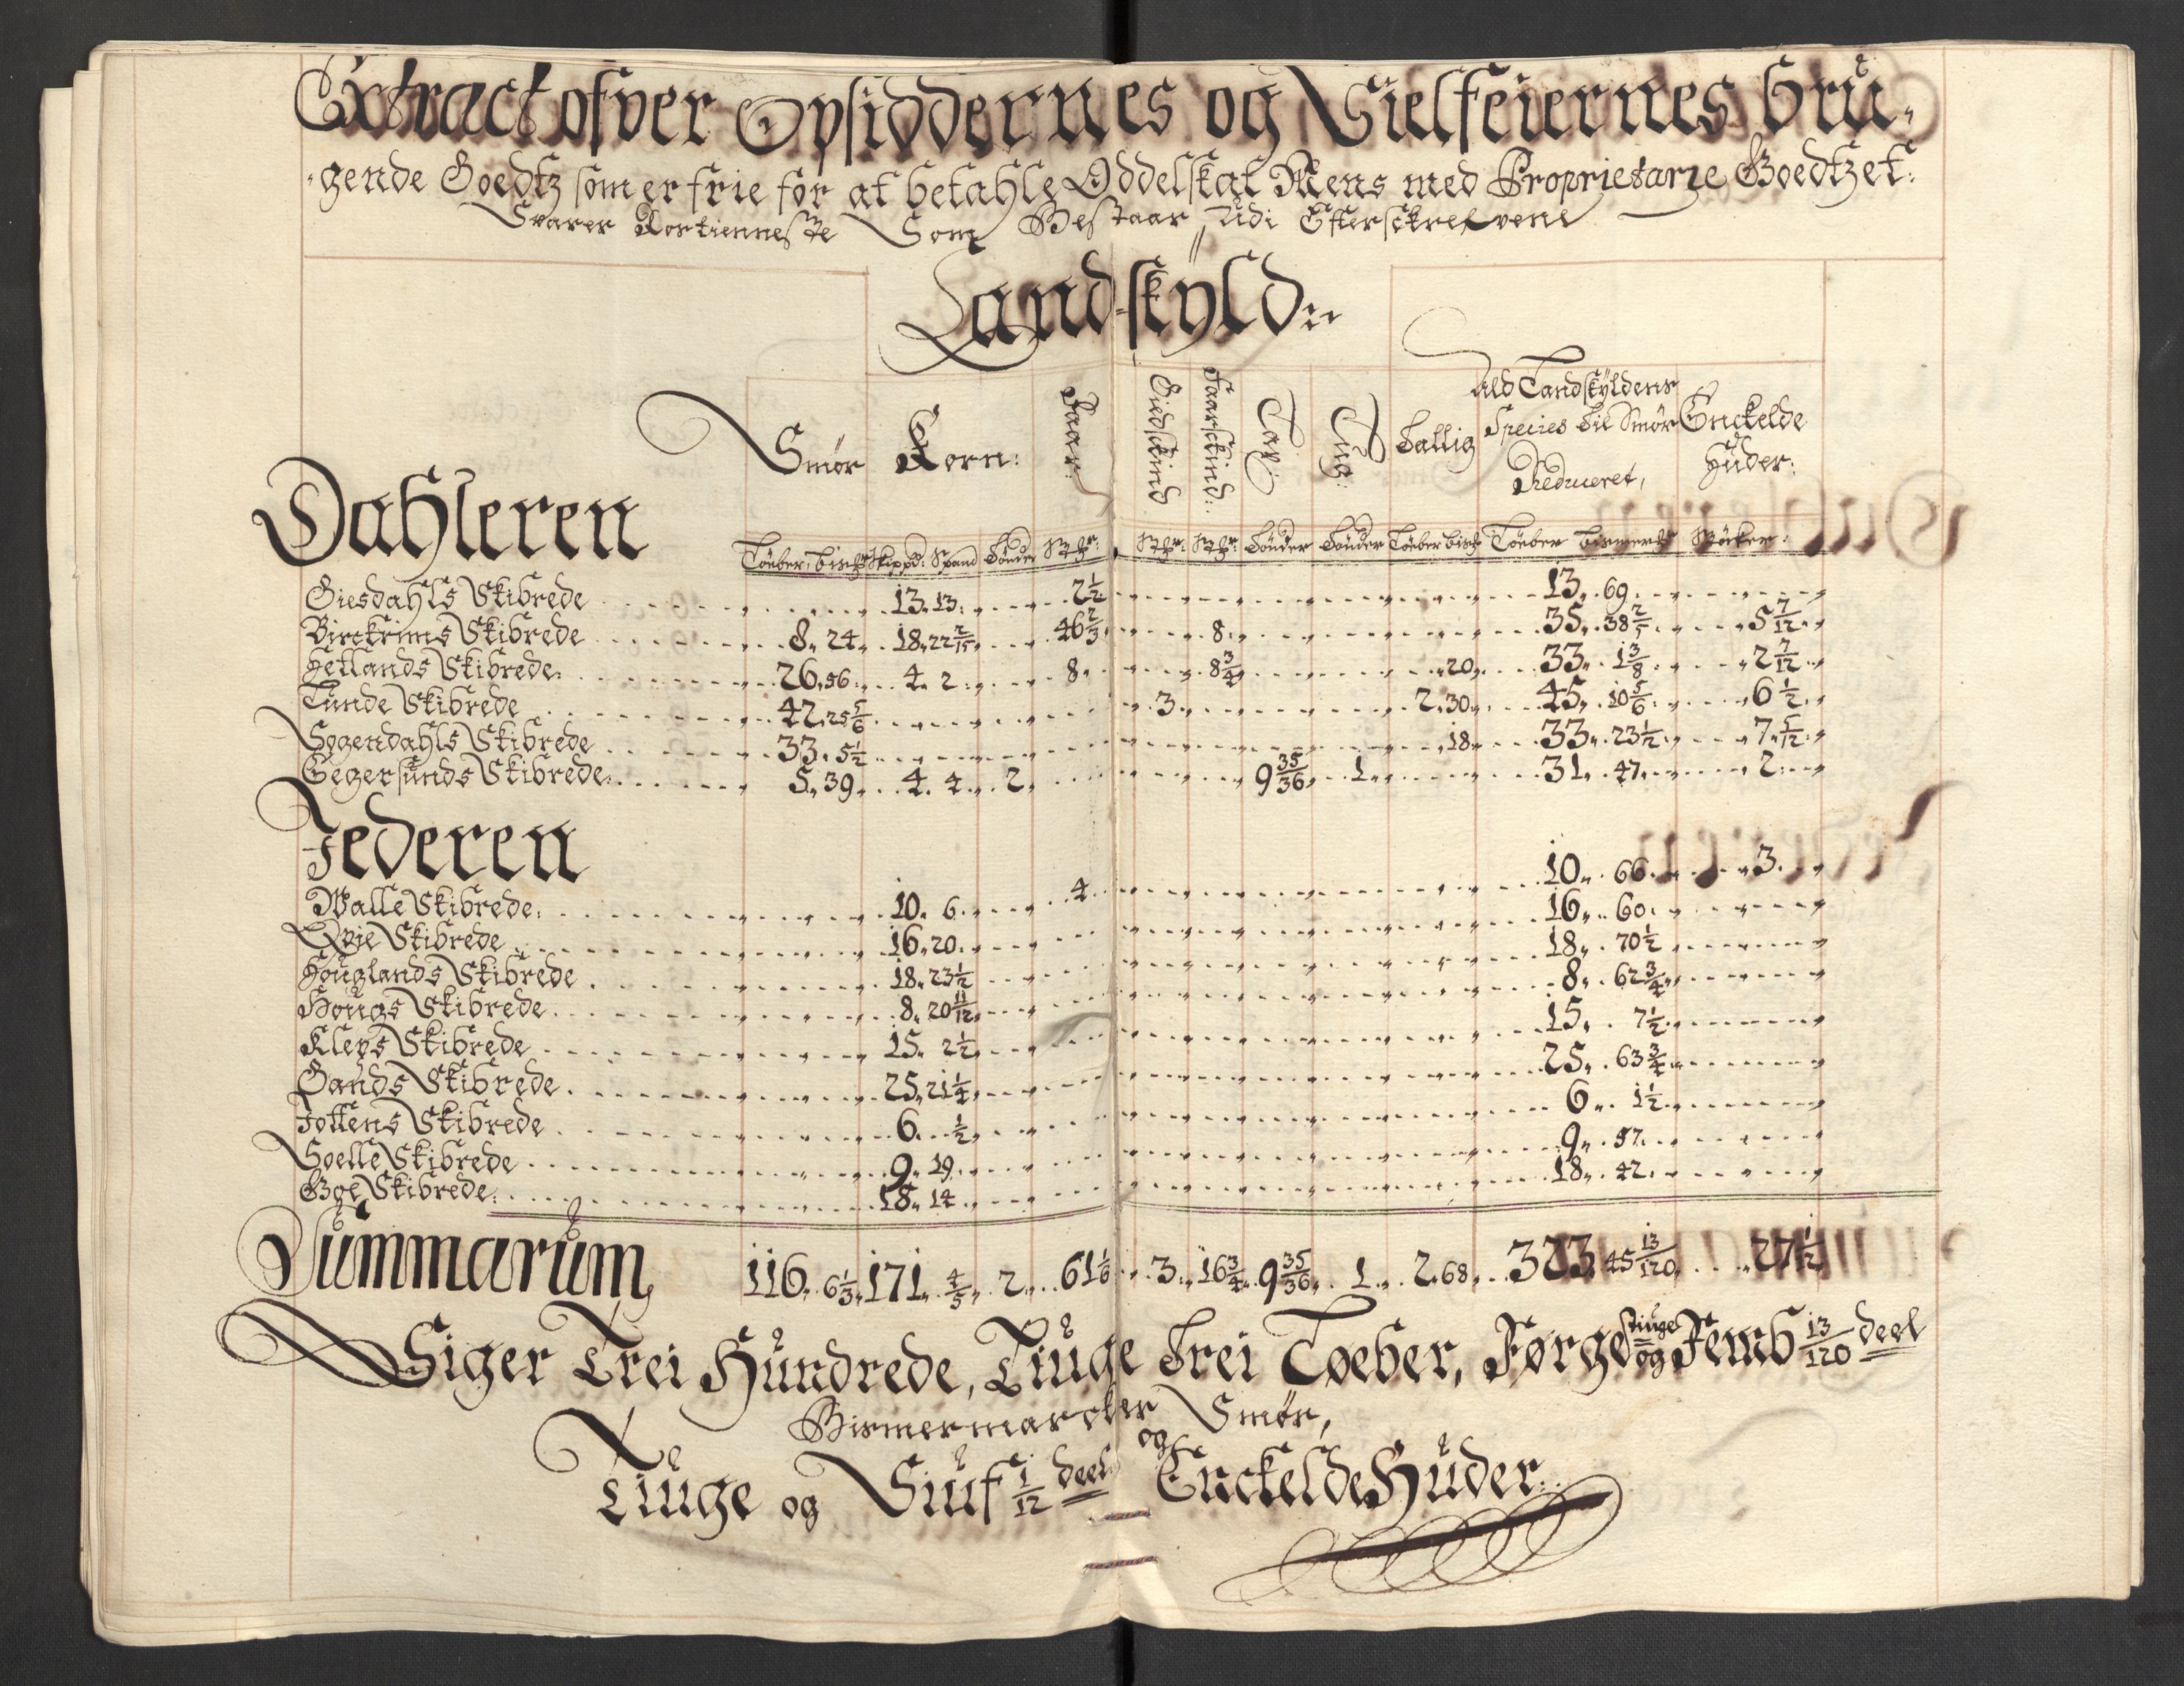 Extract ofver Opsiddernes og Sielfeiernes bru-
gende Goedtz som er frie for at betahle Oddelskat Mens med Proprietarie Goedtzet
Svarer Rostienneste Som Bestaar Udi Effterschrefvene
Land-skyld
Smør Korn: Faar: Giedskind Faarskind: Lax: Tallig Ald Landskyldens Species til Smør Reduceret, Enckelde Huder:
Dahleren
Løeber, Skippd: Spand Tønder Tønder Tønder Løeber Løeber
Giesdahls Skibrede 13. 13. 2 1/2 13. 69.
Birckrims Skibrede 8. 24. 18. 22 2/15 46 2/3 8. 35. 38 2/5 5 7/12
Hetlands Skibrede 26. 56. 4. 2. 8. 8 3/4 20. 33. 1 3/8 2 7/12
Lunde Skibrede 42. 25 5/6 3. 2. 30. 45. 10 5/6 6 1/2
Sogendahls Skibrede 33. 5 1/2 18. 33. 23 1/2 7 5/12
Egersunds Skibrede 5. 39. 4. 4. 2. 9 35/36 1. 31. 47. 2.
Jederen
Walle Skibrede 10. 6. 4. 10. 66. 3.
Qvie Skibrede 16. 20. 16. 60.
Houglands Skibrede 18. 23 1/2 18. 70 1/2
Hougs Skibrede 8. 20 11/12 8. 62 3/4
Kleps Skibrede 15. 2 1/2 15. 7 1/2
Gands Skibrede 25. 21 1/4 25. 63 3/4
Jottens Skibrede 6. 1/2 6. 1 1/2
Soelle Skibrede 9. 19. 9. 57.
Bøe Skibrede 18. 14. 18. 42.
Summarum 116. 6 1/3 171. 4/5 2. 61 1/6 3. 16 3/4 9 35/36 1. 2. 68. 323. 45 13/120 27 1/2
Siger Trei Hundrede, Tiuge Trei Løeber, Førgestiuge og Femb 13/120 deel
Bismermarcker Smør,
og
Tiuge og Siuf 1/12 deel Enckelde Huder.